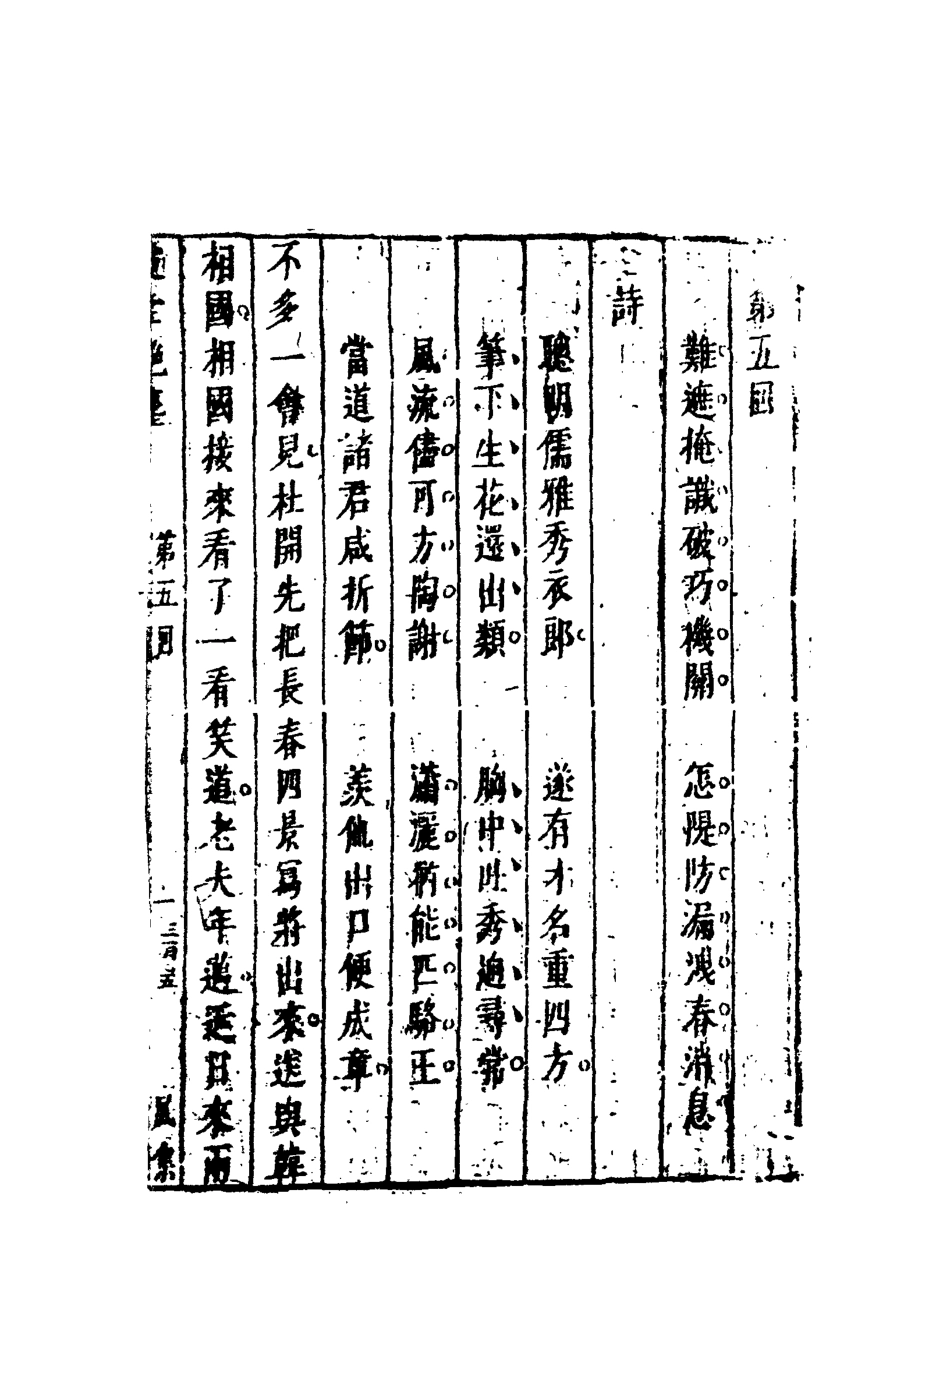 第五回
難遮掩識破巧機關　怎惺防漏洩春消息
詩
聰明儒雅秀衣郎　遂有才名重四方
筆下生花還出類　胸中吐秀迥尋常
風流儘可方陶謝　瀟灑猶能匹駱王
當道諸君咸折節　羨伊出口便成章
不多一會兒杜開先把長春四景寫將出來送與韓
相國相國接來看了一看笑道老夫年邁近日來兩
第五回　三百五　風集